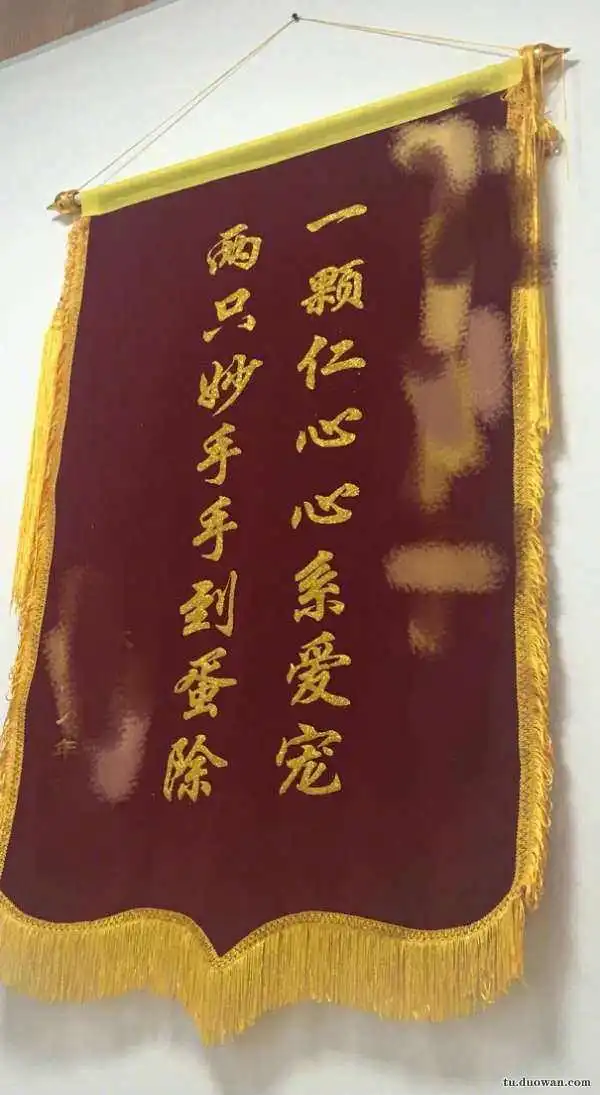 一颗仁心心系爱宠
两只妙手手到蛋除
年
tu.duowan.com